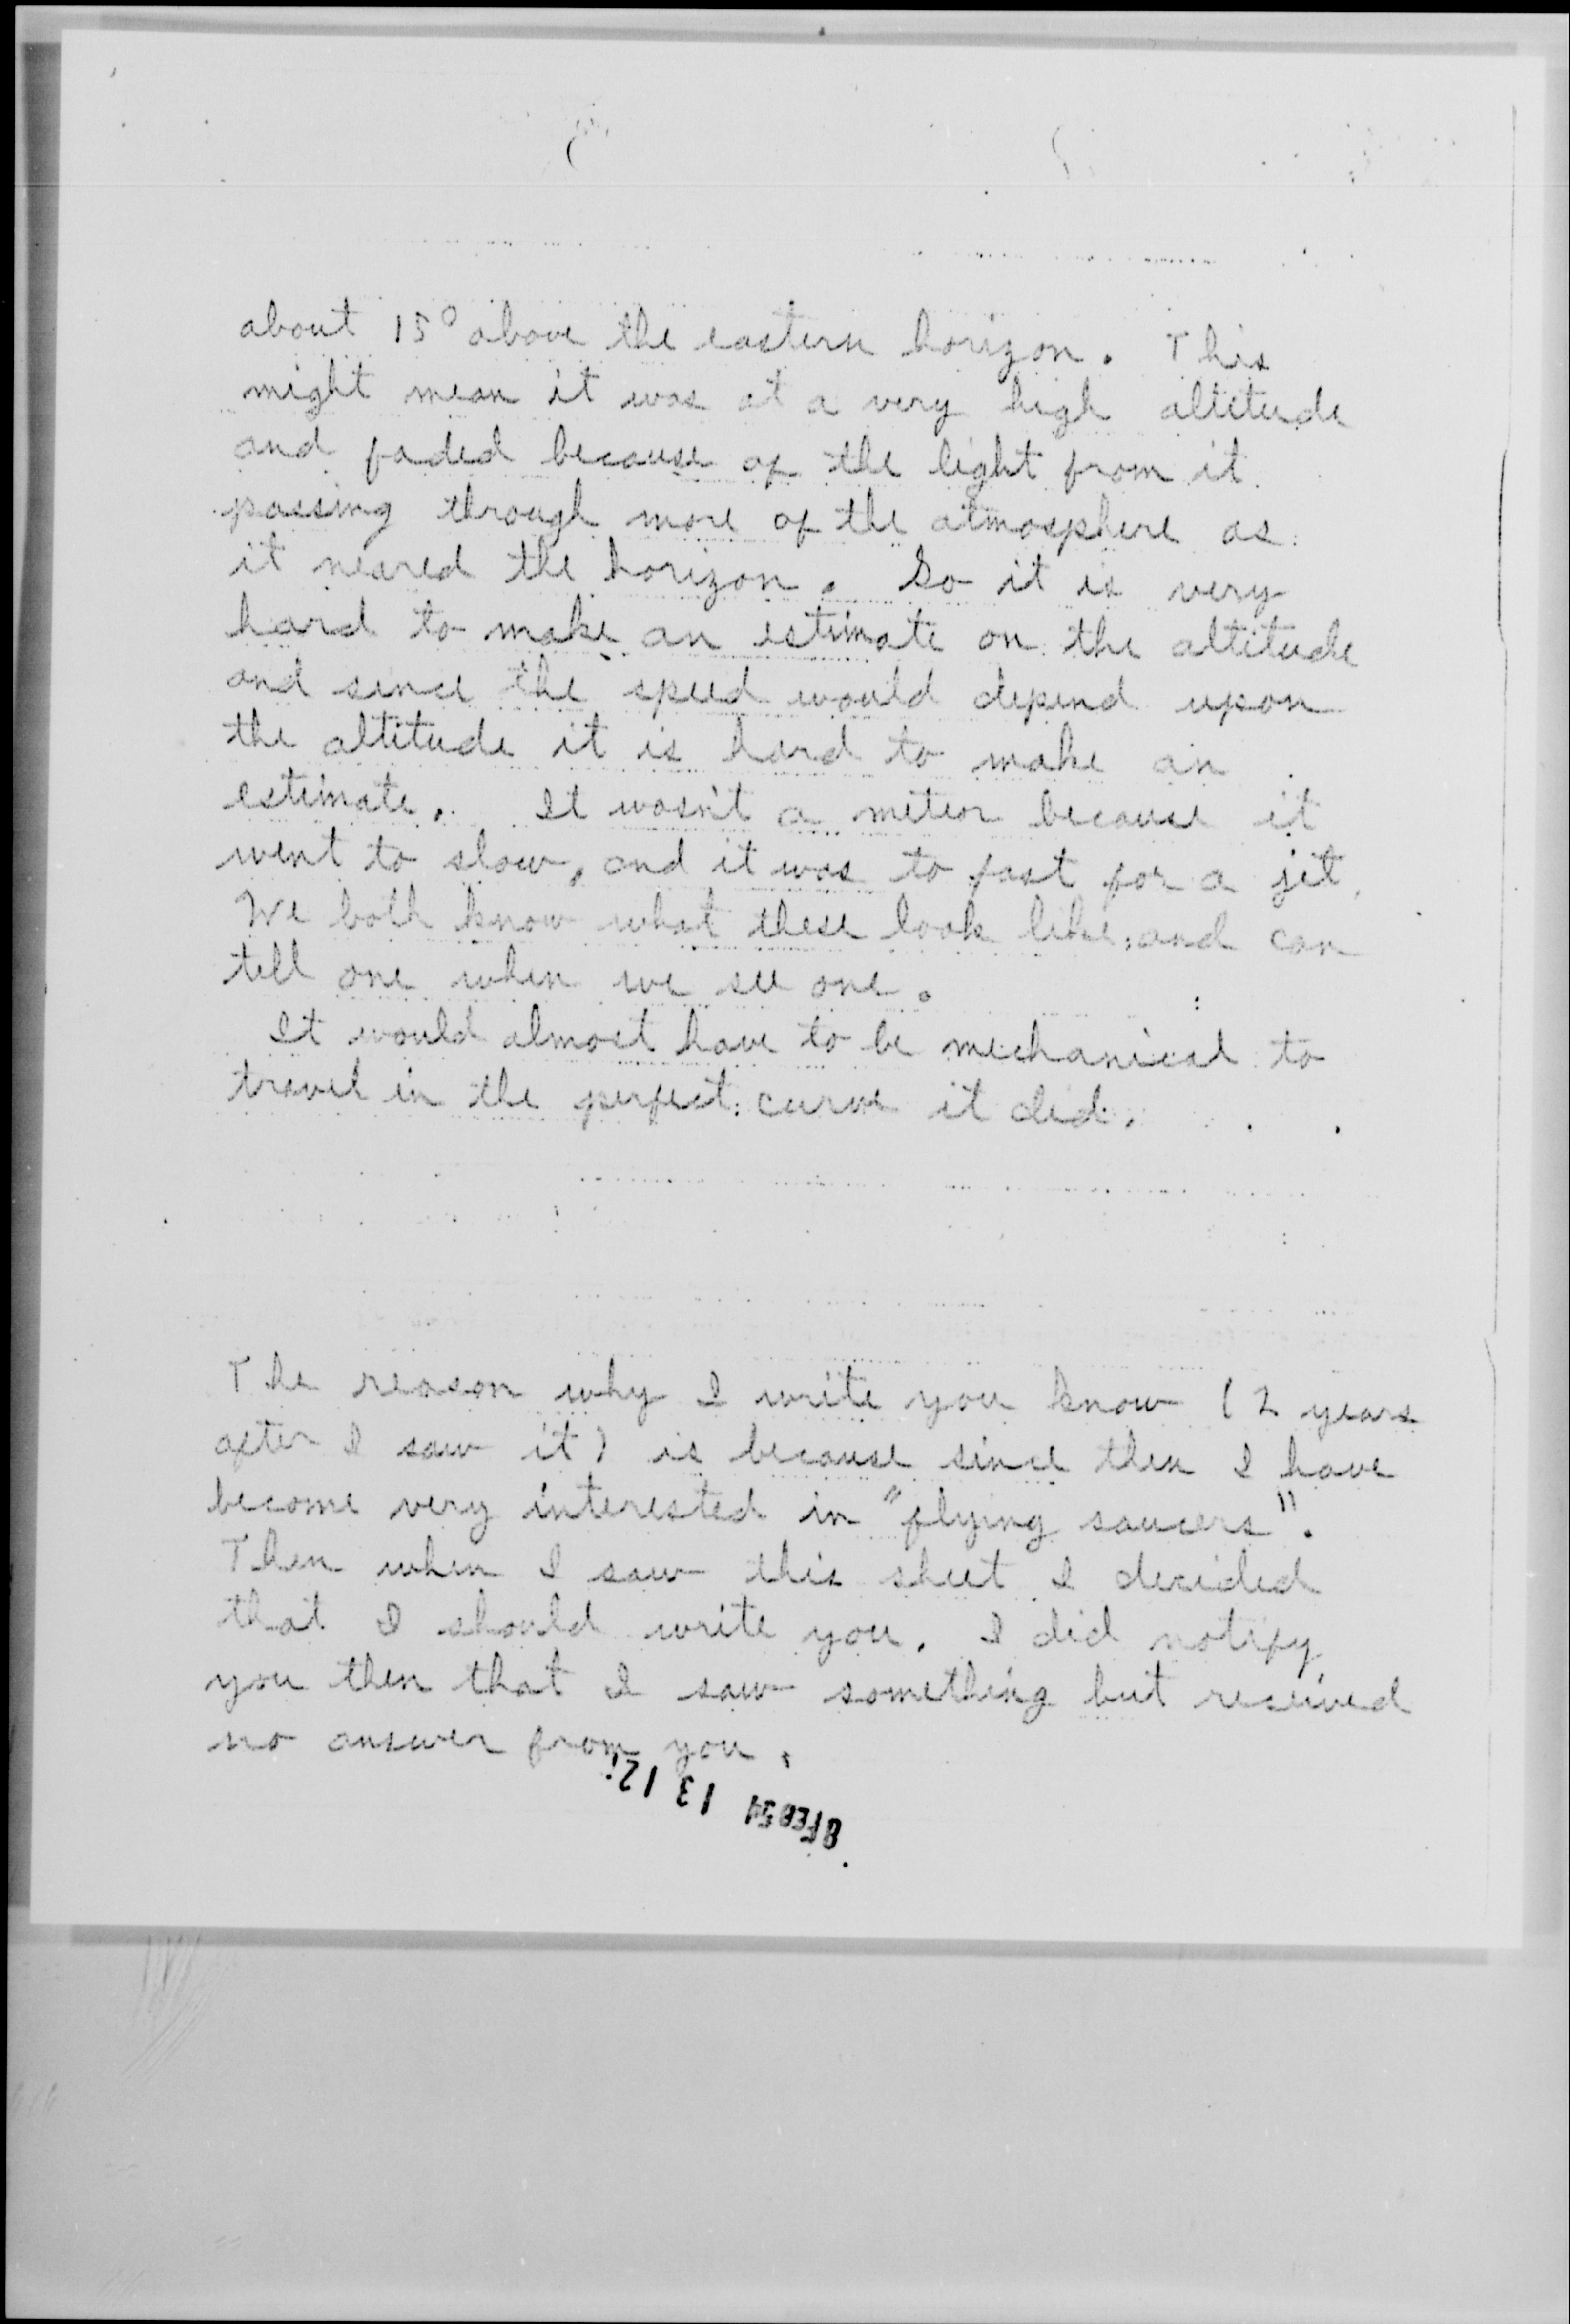 about 15° above the eastern horizon. This
might mean it was at a very high altitude
and faded because of the light from it
passing through more of the atmosphere as
it neared the horizon. So it is very
hard to make an estimate on the altitude
and since the speed would depend upon
the altitude it is hard to make an
estimate. It wasn't a meteor because it
went to slow, and it was to fast for a jet.
We both know what these look like, and can
tell one when we see one.
It would almost have to be mechanical to
travel in the perfect curve it did.
The reason why I write you know (2 years
after I saw it) is because since then I have
become very interested in "flying saucers".
Then when I saw this sheet I decided
that I should write you. I did notify
you then that I saw something but received
no answer from you.
8 FEB 54 13 12